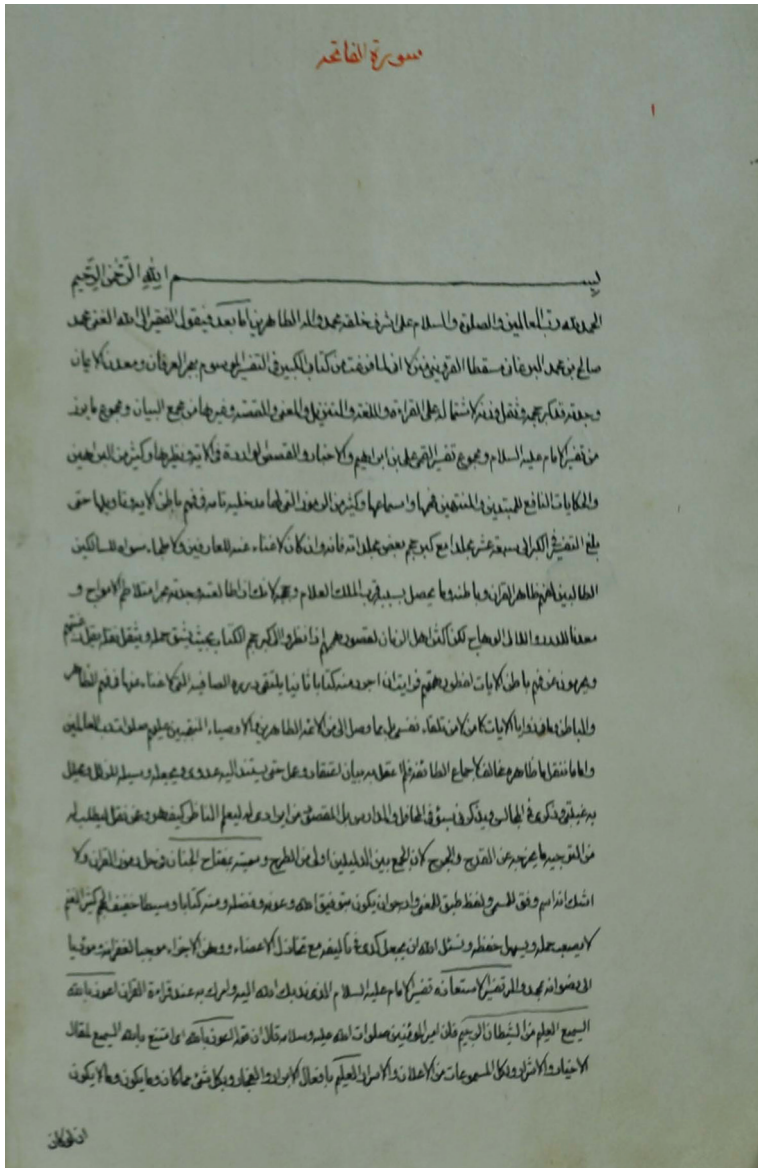 سورة الفاتحة
١
بسم الله الرحمن الرحيم
الحمد لله رب العالمين والصلوة والسلام على اشرف خلقه محمد واله الطاهرين اما بعد فيقول الفقير الى الله الغنى محمد
صالح بن محمد البرغانى مسقطا القزوينى لما فرغت من كتاب الكبير فى التفسير الموسوم ببحر العرفان ومعدن الايمان
وجدته قد كبر حجمه وثقل وزنه لاشتماله على القراءة واللغة والتنزيل والمعنى والقصة وغيرها من مجمع البيان ومجموع ما برز
من تفسير الامام عليه السلام ومجموع تفسير القمى على بن ابراهيم والاخبار والقصص الواردة فى الاية ونظيرها وكثير من البراهين
والحكايات النافع للمبتدين والمنتهين فهمها واسماعها وكثير من الرموز التى لها مدخلية تامة فى فهم باطن الاية وتاويلها حتى
بلغ التفسير الكبير الى سبعة عشر مجلدا مع كبر حجم بعض مجلداته فانه وان كان لا غناء عنه للعارفين والعلماء سواه للسالكين
الطالبين لفهم ظاهر القران وباطنه وما يحصل بسببه قرب الملك العلام لانك اذا طالعته وجدته بحرا متلاطم الامواج و
معدنا للدرر واللالى الوهاج لكن اكثر اهل الزمان لقصور همهم اذا نظروا الى كبر حجم الكتاب بحيث يشق حمله ويثقل نقله
عن فهم باطن الايات فرايت ان اجرد منه كتابا ثانيا درره الصافية التى لا غناء عنها فى فهم الظاهر
والباطن الايات نفسى بل مما وصل الى من الائمة الطاهرين والاوصياء المنتجبين عليهم صلوات رب العالمين
واما ما ننقل ما ظاهره مخالف لاجماع الطائفة اعتقاد وعمل حتى يستند اليه عدوى ويجعله وسيلة
فى المجالس فى المحافل والمدارس بل المقصود من ايرادى له ليعلم الناظر كيف هو
من التوجيه ما يخرجه عن القدح والجرح لان الجمع بين الدليلين اولى من الطرح وسميته بمفتاح الجنان فى حل رموز القران ولا
اشك انه اسم وفق المسمى ولفظ طبق المعنى وارجو ان يكون بتوفيق الله وعونه وفضله ومنه كتابا وسيطا خفيف الحجم كثير الغنم
لا يصعب حمله ويسهل حفظه ونسئل الله ان يجعل كدى فى تاليفه مع تخاذل الاعضاء ووهن الاجزاء موجبا لغفرانه ومؤديا
الى رضوانه بمحمد واله تفسير الاستعاذة تفسير الامام عليه السلام الذى ندبك الله اليه وامرك به عند قراءة القران اعوذ بالله
السميع العليم من الشيطان الرجيم فان امير المؤمنين صلوات الله عليه وسلامه قال ان قوله اعوذ بالله اى امتنع بالله السميع لمقال
الاخيار والاشرار ولكل المسموعات من الاعلان والاسرار العليم بافعال الابرار والفجار وبكل شئ مما كان وما يكون وما لا يكون
ان لو كان